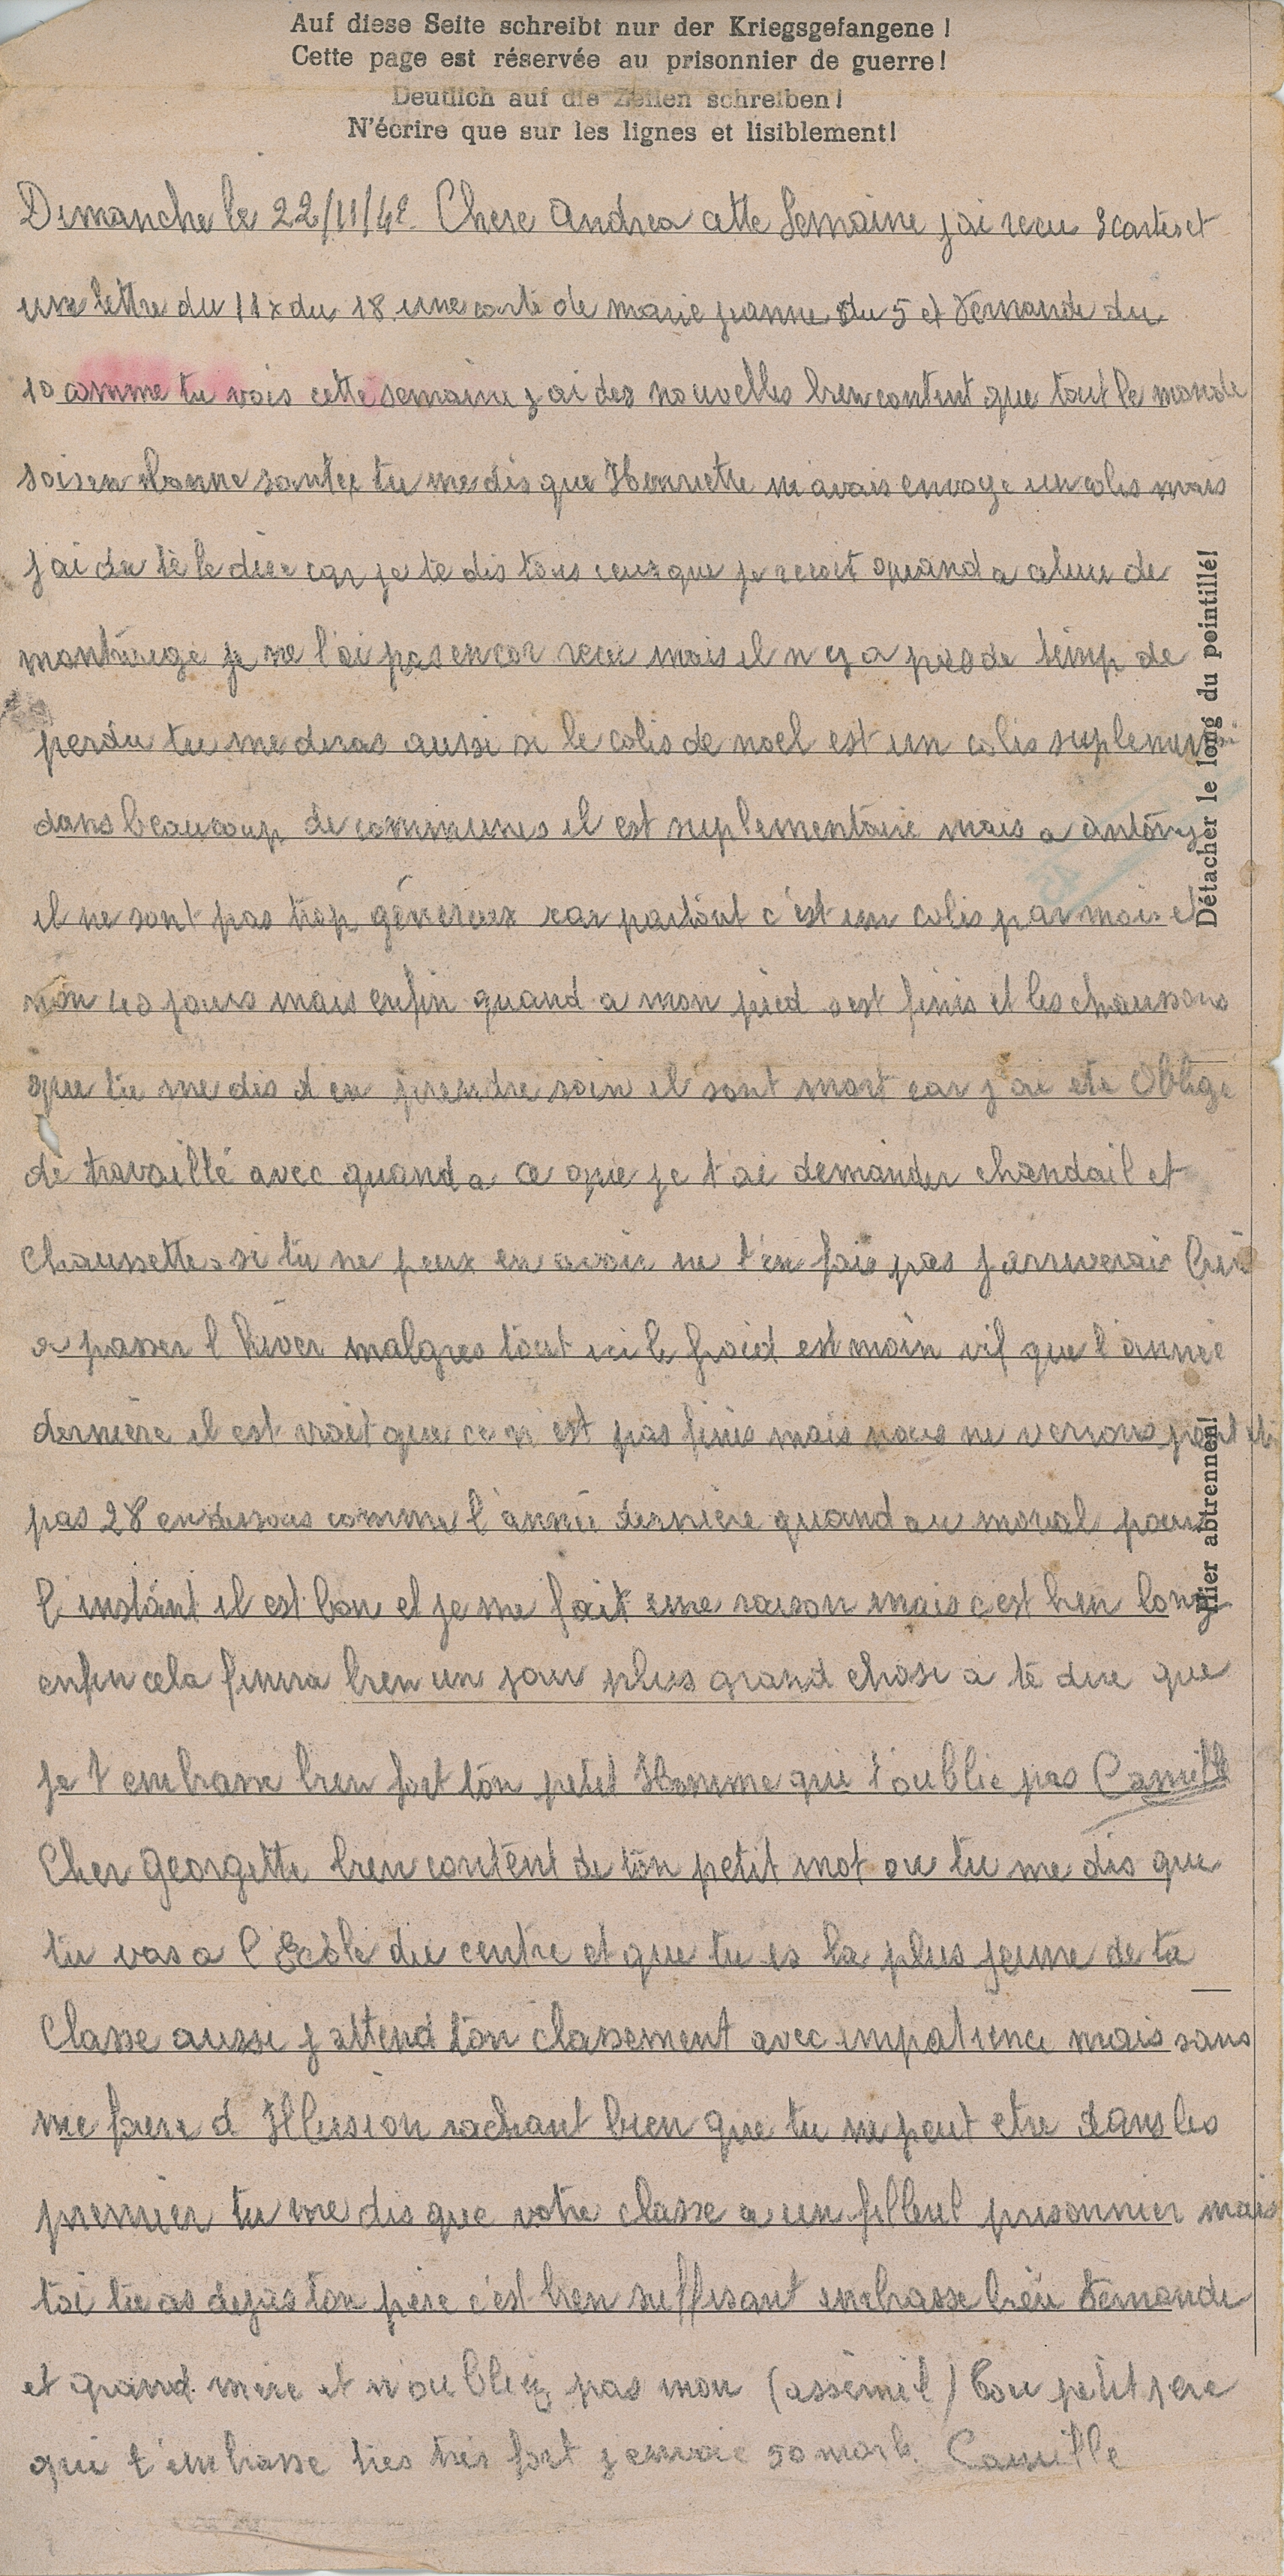 Auf diese Seite schreibt nur der Kriegsgefangene !
Cette page est réservée au prisonnier de guerre!
Deutlich auf die Zeilen schreiben!
N'écrire que sur les lignes et lisiblement!
Dimanche le 22/11/42. Chere Andrea cette Semaine j ai recu 3 cartes et
une lettre du 11 x du 18 une carte de marie jeanne du 5 et Fernande du
10 comme tu vois cette semaine j ai des nouvelles bien content que tout le monde
sois en bonne santee tu me dis que Henriette m avais envoye un colis mais
j ai du te le dire car je te dis tous ceux que je recoit quand a celui de
montrouge je ne l'ai pas encor recu mais il n y a pas de temp de
perdu tu me diras aussi si le colis de noel est un colis suplementai
dans beaucoup de communes il est suplementaire mais a antony
il ne sont pas trop génereux car partout c'est un colis par mois et
non 40 jours mais enfin quand a mon pied s est finis et les chaussons
que tu me dis d en prendre soin il sont mort car j ai ete Obligé
de travaillé avec quand a ce que je t'ai demander chandail et
chaussettes si tu ne peux en avoir ne t'en fais pas j arriverais bien
a passer l hiver malgres tout ici le froid est moin vif que l'année
derniere il est vrait que ce n'est pas finis mais nous ne verrons peut etre
pas 28 en dessous comme l'année derniere quand au moral pour
l'instant il est bon et je me fait une raison mais c est bien long
enfin cela finira bien un jour plus grand chose a te dire que
je t embrasse bien fort ton petit Homme qui t'oublie pas Camille
Cher Georgette bien content de ton petit mot ou tu me dis que
tu vas a l'Ecole du centre et que tu es la plus jeune de ta
Classe aussi j attend ton classement avec impatience mais sans
me faire d Illusion sachant bien que tu ne peut etre dans les
premier tu me dis que votre classe a un filleul prisonnier mais
toi tu as dejas ton père c'est bien suffisant embrasse bien Fernande
et grand mere et n'oubliez pas mon (assimil) Ton petit pere
qui t'embrasse tres très fort j envoie 50 mark. Camille
Détacher le long du pointillé!
Hier abtrennen!